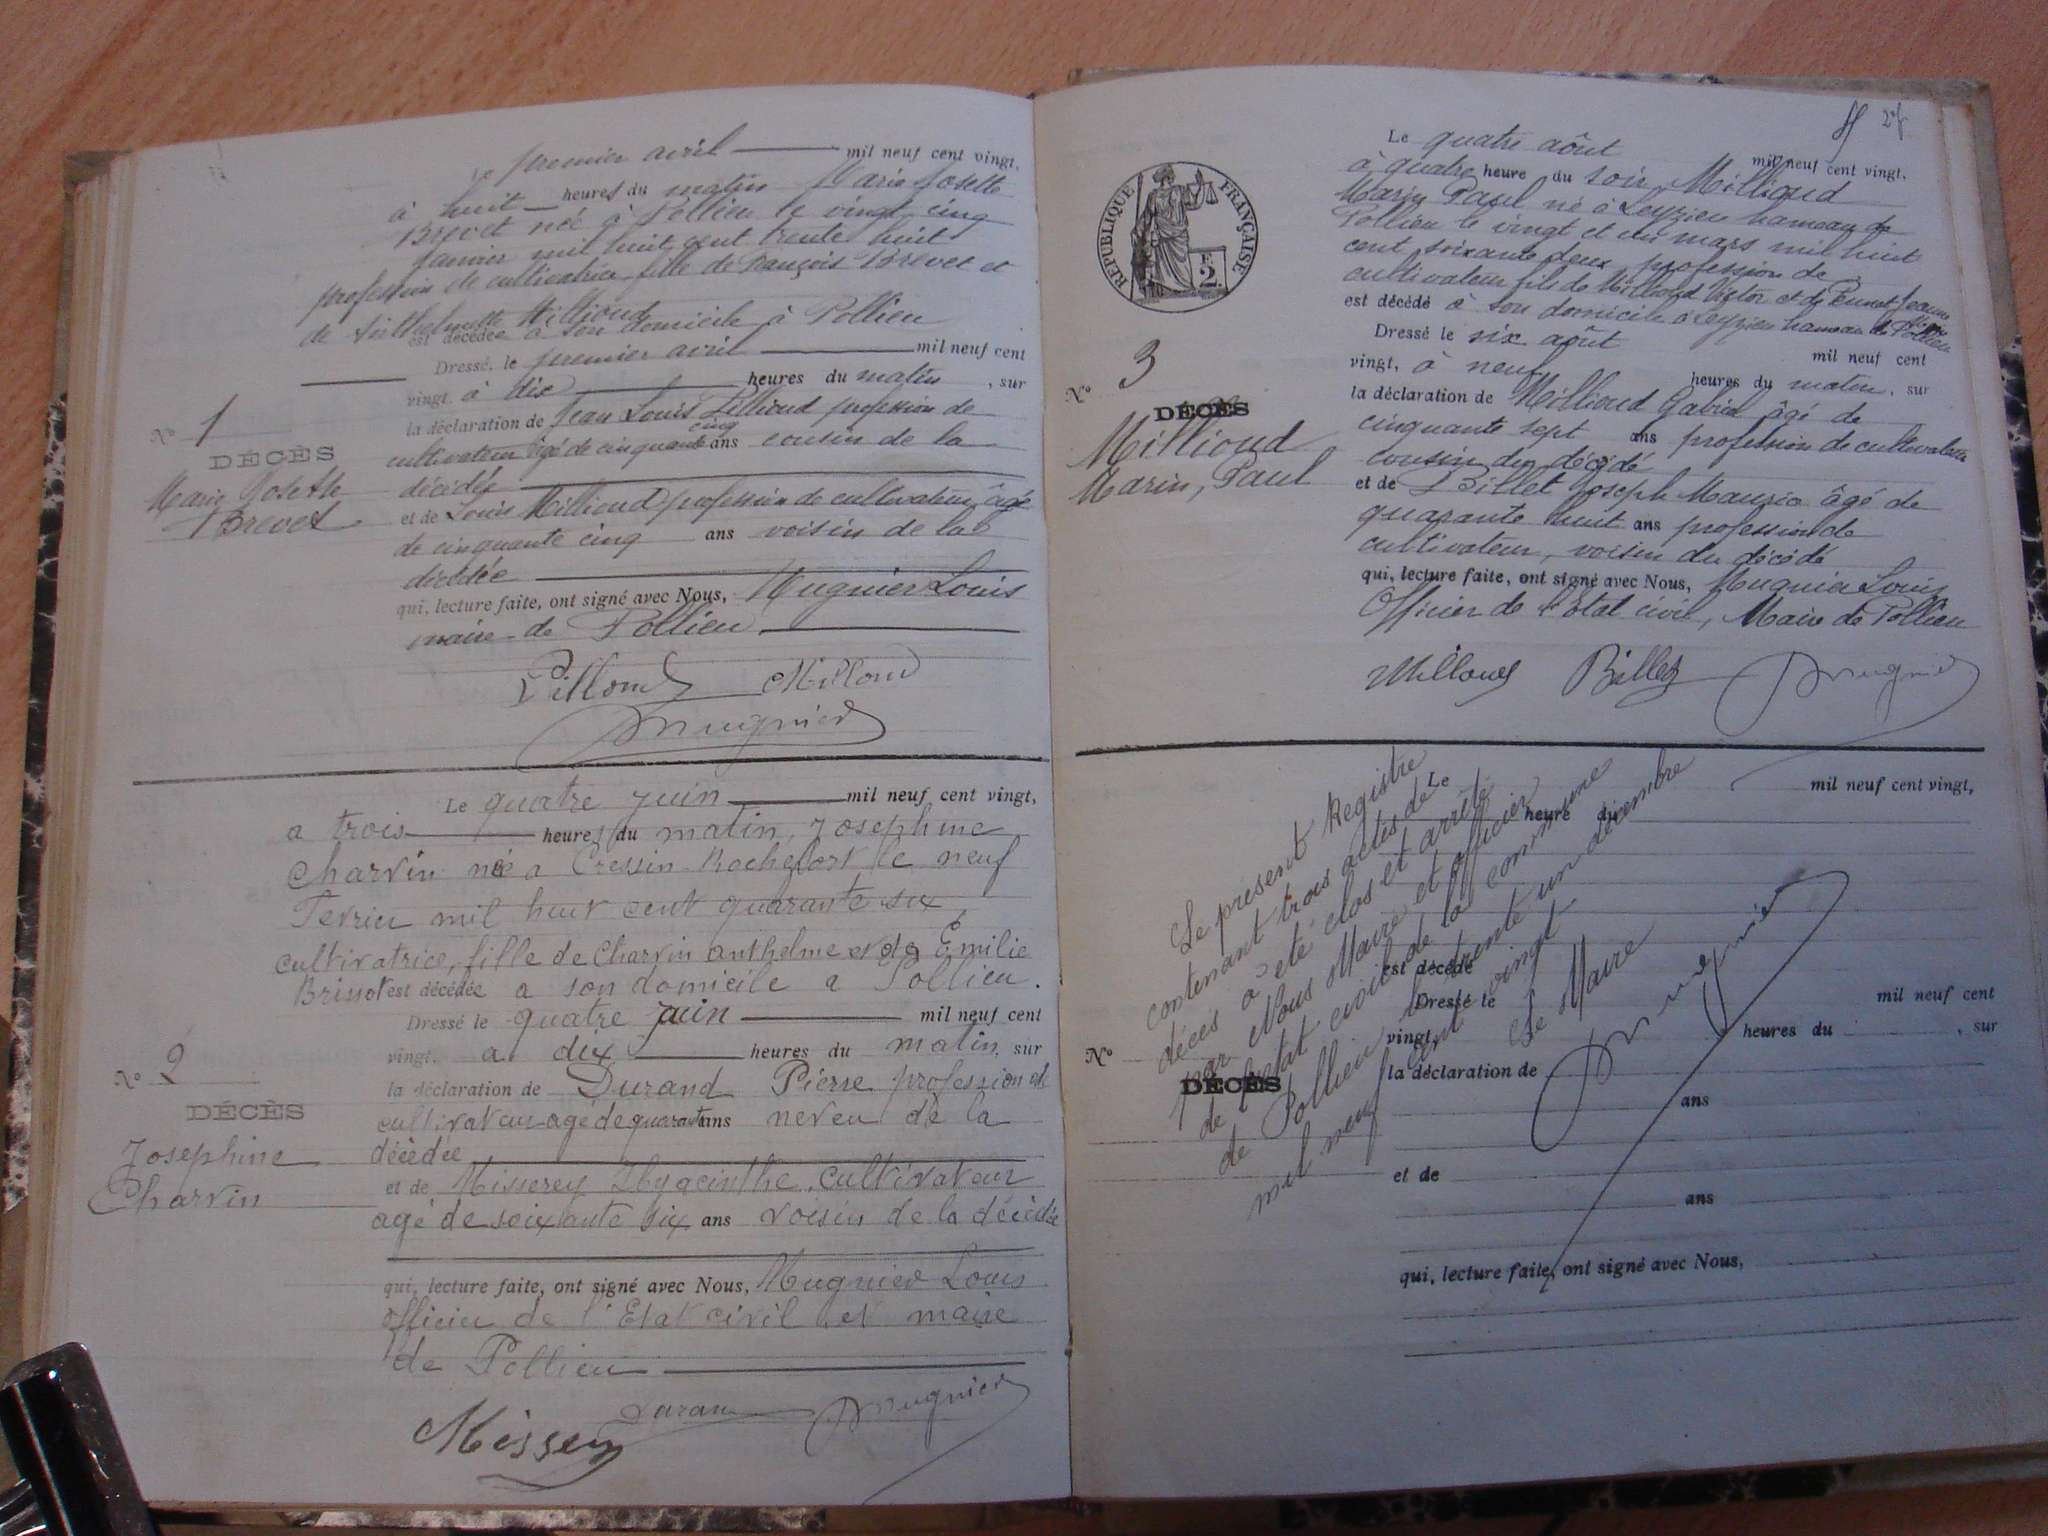 premier avril mil neuf cent vingt,
à huit heures du matin Marie Josette
Brevet née à Pollieu le vingt cinq
janvier mil huit cent trente huit
profession de cultivatrice, fille de François Brevet et
de Millioud
est décédée à son domicile à Pollieu
Dressé, le premier avril mil neuf cent
vingt, à dix heures du matin, sur
la déclaration de Jean Louis profession de
cultivateur âgé de cinquante cinq ans cousin de la
décédée
et de Louis Millioud profession de cultivateur âgé
de cinquante cinq ans voisin de la
décédée
qui, lecture faite, ont signé avec Nous, Mugnier Louis
maire de Pollieu
N° 1
DÉCÈS
Marie Josette
Brevet
Millioud
Mugnier
Le quatre juin mil neuf cent vingt,
a trois heures du matin, Josephine
Charvin née a Cressin Rochefort le neuf
Fevrier mil huit cent quarante six
cultivatrice, fille de Charvin anthelme et de Emilie
Brissot est décédée a son domicile a Pollieu.
Dressé le quatre juin mil neuf cent
vingt, a dix heures du matin, sur
la déclaration de Durand Pierre profession de
cultivateur agé de quarante ans neveu de la
décèdée
et de Misserey Hyacinthe, cultivateur
agé de soixante six ans voisin de la décèdée
qui, lecture faite, ont signé avec Nous, Mugnier Louis
officier de l'Etat civil et maire
de Pollieu
N° 2
DÉCÈS
Josephine
Charvin
Durand
Mugnier
Misserey
2e f
RÉPUBLIQUE FRANÇAISE
2 F.
Le quatre août mil neuf cent vingt,
à quatre heure du soir Millioud
Marin Paul né à Leyzieu hameau de
Pollieu le vingt et un mars mil huit
cent soixante deux profession de
cultivateur fils de Millioud Victor et de Jeanne
est décédé à son domicile à Leyzieu hameau de Pollieu
Dressé le six août mil neuf cent
vingt, à neuf heures du matin, sur
la déclaration de Millioud Gabriel âgé de
cinquante sept ans profession de cultivateur
cousin du décédé
et de Billet Joseph Mauzio âgé de
quarante huit ans profession de
cultivateur, voisin du décédé
qui, lecture faite, ont signé avec Nous, Mugnier Louis
Officier de l'état civil, Maire de Pollieu
N° 3
DÉCÈS
Millioud
Marin, Paul
Millioud Billet Mugnier
Le mil neuf cent vingt,
heure du
est décédé
Dressé le mil neuf cent
vingt, heures du , sur
la déclaration de
ans
et de
ans
qui, lecture faite, ont signé avec Nous,
N°
DÉCÈS
Le présent Registre
contenant trois actes de
décès a été clos et arrêté
par Nous Maire et officier
de l'état civil de la commune
de Pollieu le trente un décembre
mil neuf cent vingt
Le Maire
Mugnier